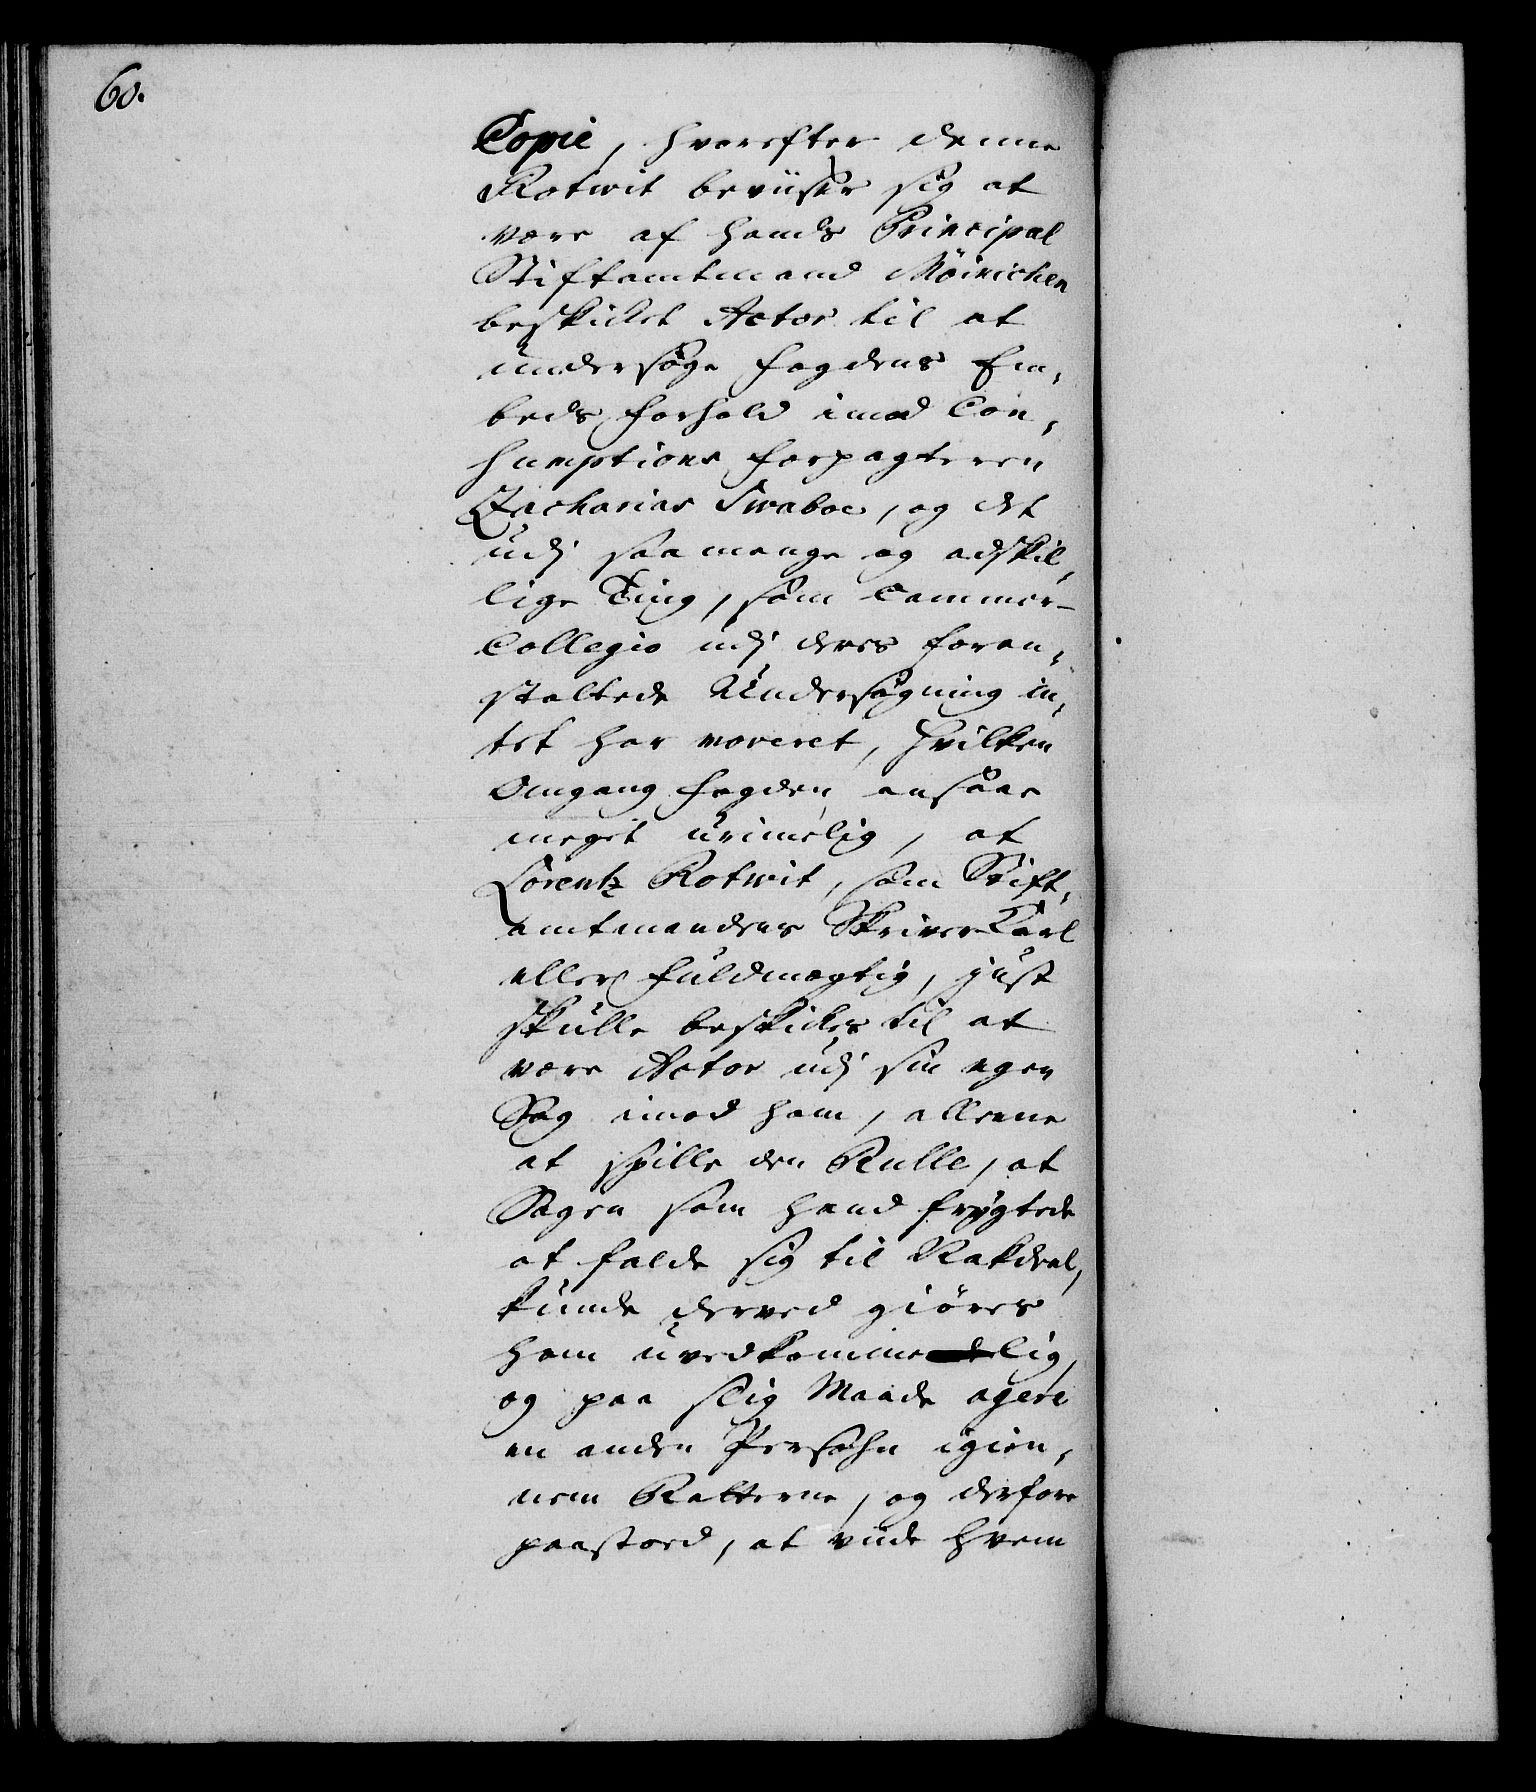 60.
Copie, hvorefter denne
Rotwit beviiser sig at
være af hands Principal
Stiftamtmand Möinichen
beskicket Actor til at
undersøge Fogdens Em,
beds Forhold imod Con,
sumptions Forpagteren
Zacharias Swaboe, og det
udj saa mange og adskil,
lige Ting, som Cammer-
Collegio udj deres foran,
staltede Undersøgning in,
tet har moveret, hvilken
Omgang Fogden ansaae
meget urimelig, at
Lorentz Rotwit, som Stift,
amtmandens Skriver Karl
eller Fuldmægtig, just
skulle beskickes til at
være Actor udj sin egen
Sag imod ham, alleene
at spille den Rulle, at
Sagen som hand frygtede
at falde sig til Rakdeel,
kunde derved giøres
ham uvedkommelig,
og paa slig Maade agere
en anden Persohn igien,
nem Retterne, og derfore
paastoed, at viide hvem